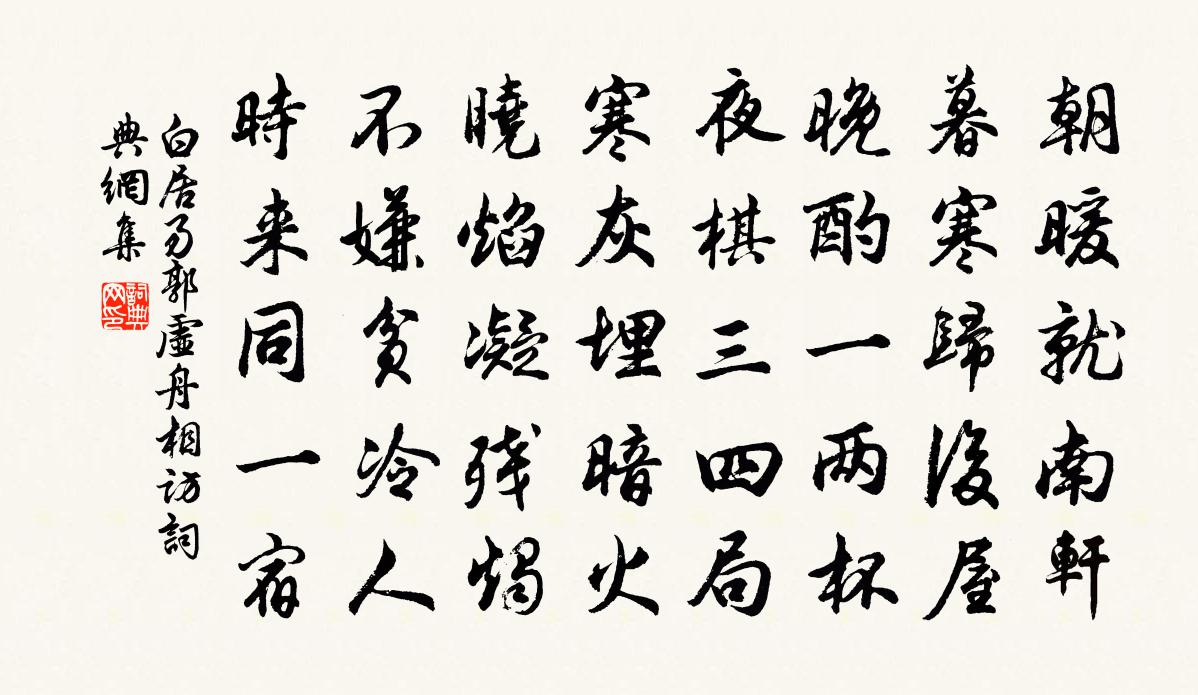 朝暖就南軒
暮寒歸後屋
晚酌一兩杯
夜棋三四局
寒灰埋暗火
曉焰凝残燭
不嫌貧冷人
時来同一宿
白居易郭虛舟相訪詞
典網集
詞典
网印